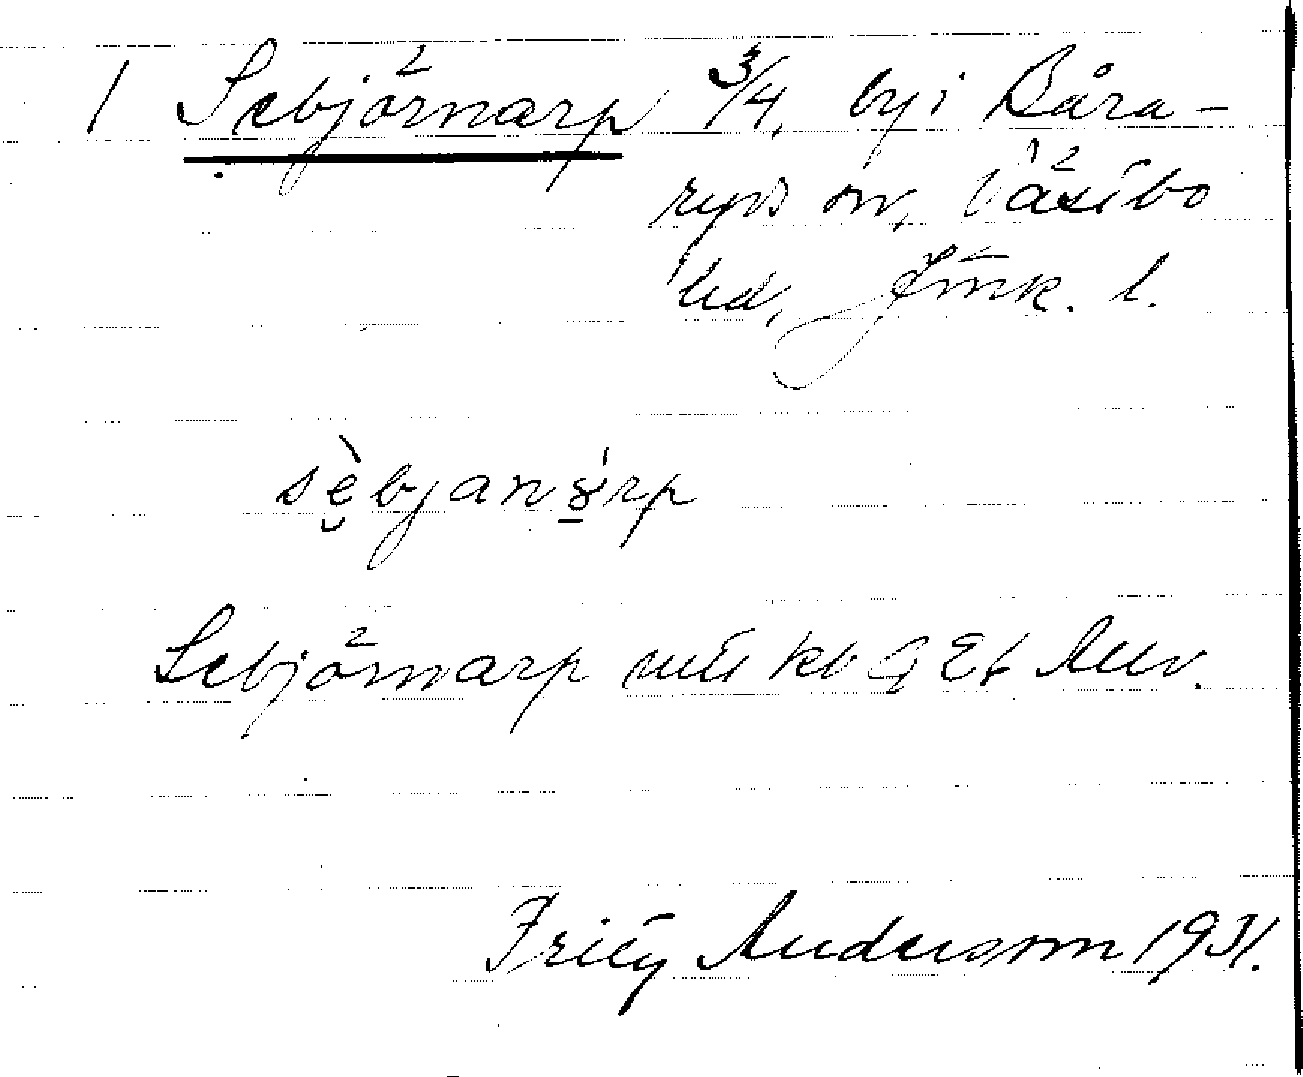 1 Sebjörnarp 3/4, by i Båra-
ryds sn, Västbo
hd, Jönk. l.
sèbjanárp
Sebjörnarp
Fritz Anderson 1931.